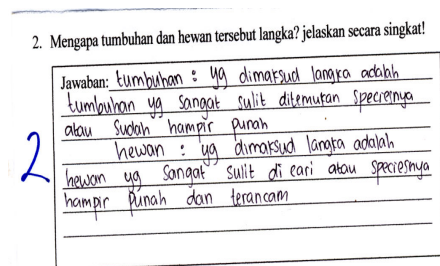 2. Mengapa tumbuhan dan hewan tersebut langka? jelaskan secara singkat!
Jawaban: tumbuhan : yg dimaksud langka adalah
tumbuhan yg sangat sulit ditemukan speciesnya
atau sudah hampir punah
hewan : yg dimaksud langka adalah
hewan yg sangat sulit di cari atau speciesnya
hampir punah dan terancam
2